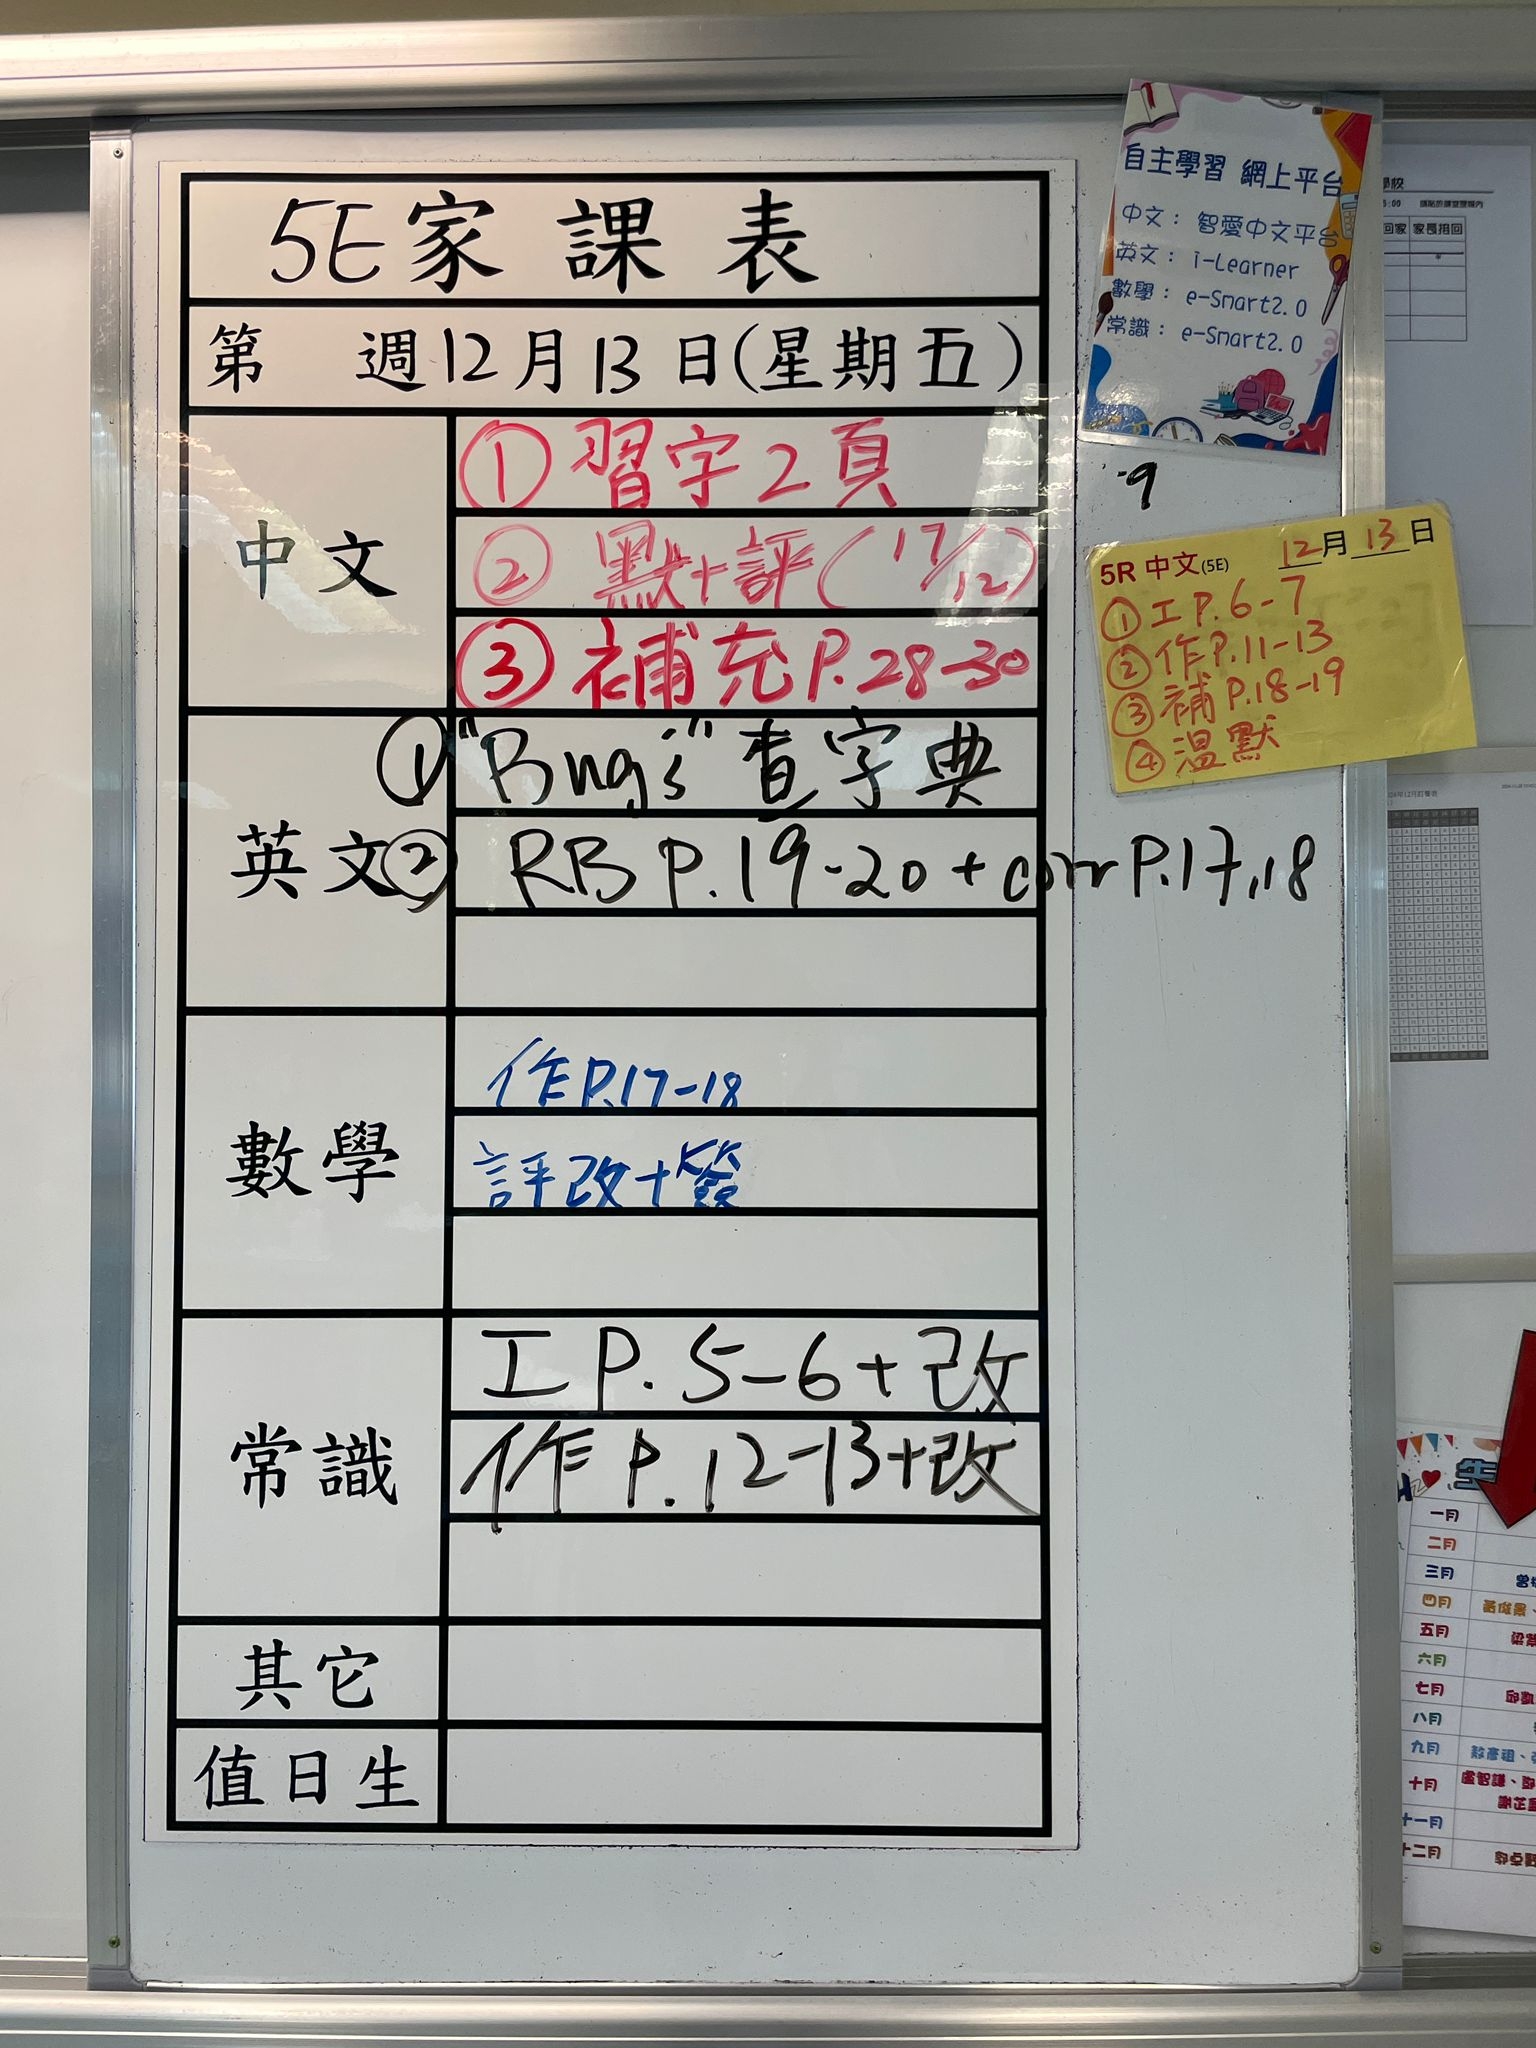 5E家課表
第 週12月13日(星期五)
中文
①習字2頁
②默+評(17/12)
③補充P.28-30
英文
①"Bugs"查字典
②RB P.19-20+corr P.17,18
數學
作P.17-18
評改+簽
常識
工P.5-6+改
作P.12-13+改
其它
值日生
自主學習 網上平台
中文：智愛中文平台
英文：i-Learner
數學：e-Smart2.0
常識：e-Smart2.0
-9
5R 中文(5E) 12月13日
①工P.6-7
②作P.11-13
③補P.18-19
④溫默
學校
回家 家長接回
生
一月
二月
三月
四月
五月
六月
七月
八月
九月
十月
十一月
十二月